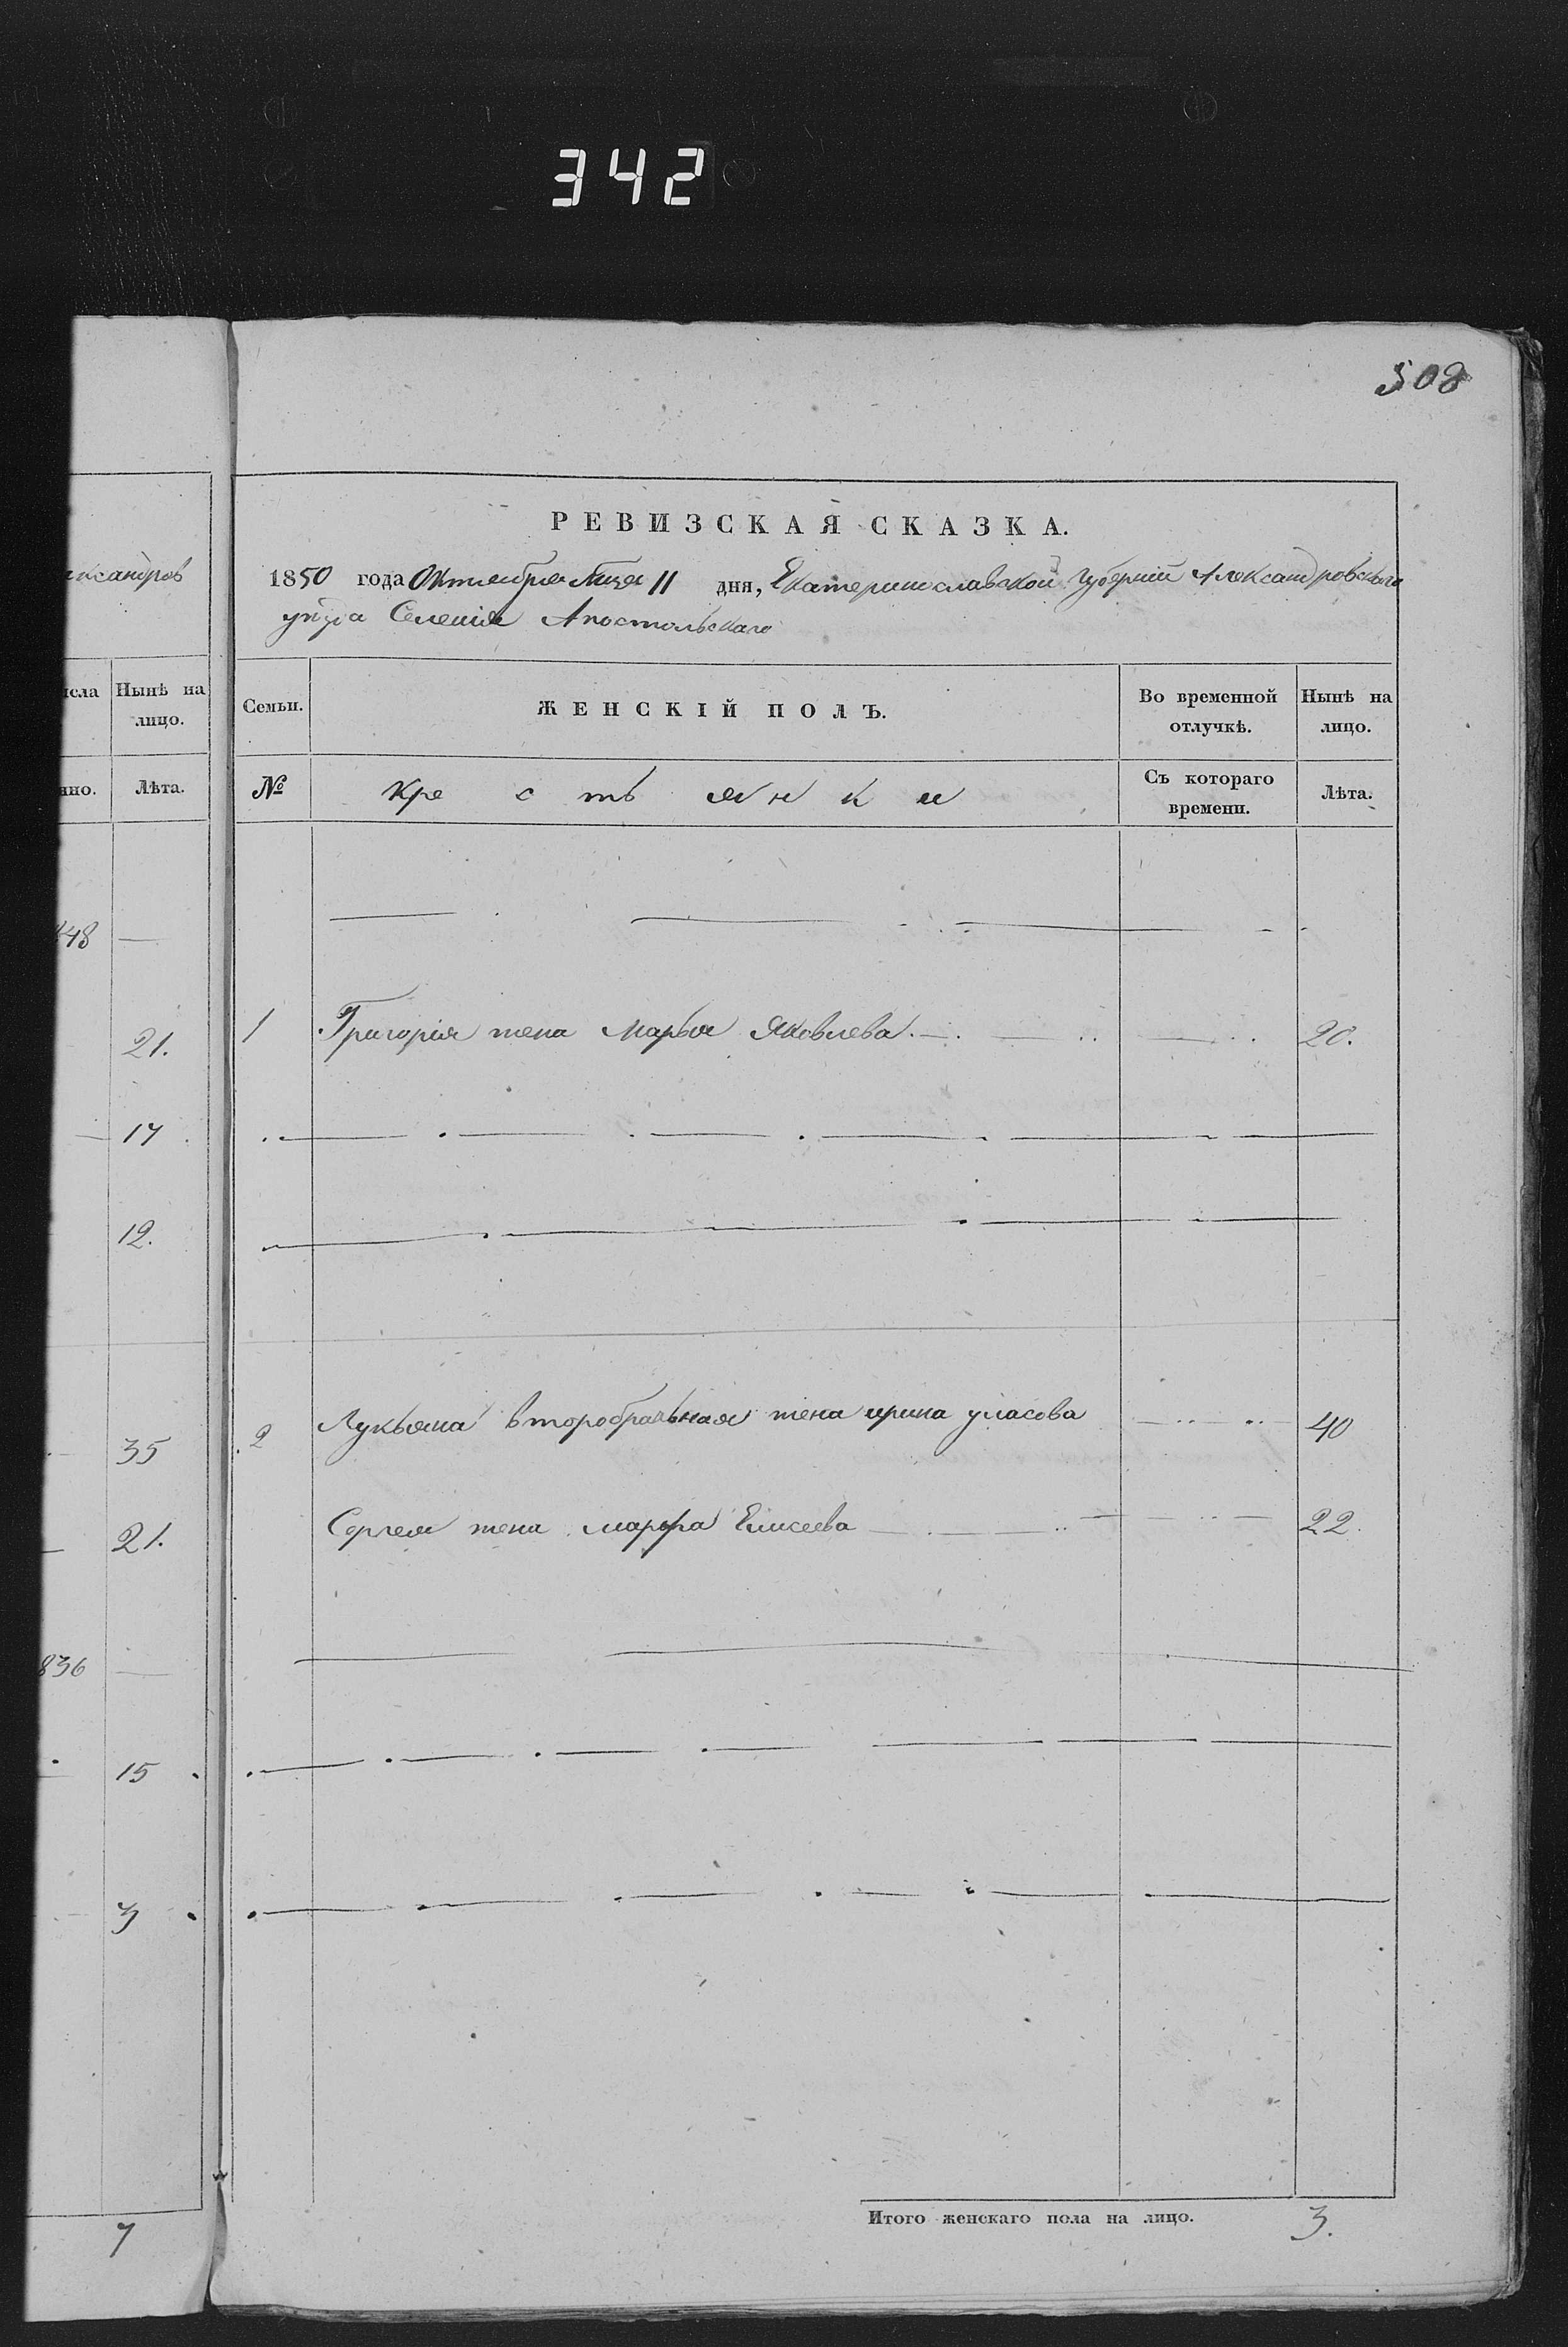 342
508
РЕВИЗСКАЯ СКАЗКА.
ксандров
1850 года Октября Мца 11 дня, Екатеринославской Губерніи Александровскаго
уѣзда Селенія Апостольскаго
исла Нынѣ на лицо.
нно. Лѣта.
Семьи. ЖЕНСКІЙ ПОЛЪ. Во временной отлучкѣ. Нынѣ на лицо.
№ Крестьянки Съ котораго времени. Лѣта.
848
21. 1 Григорія жена Марья Яковлева. 20.
17
12.
35 2 Лукьяна второбрачьная жена ирина уласова 40
21. Сергея жена марфа Елисеева 22.
836
15
3
Итого женскаго пола на лицо. 3.
7